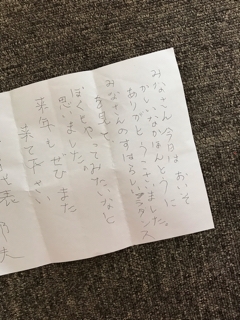 みなさん今日は おいそ
がしいなかほんとうに
ありがとうございました。
みなさんのすばらしいダンス
を見て
ぼくもやってみたいなと
思いました。
来年もぜひまた
来て下さい
代表 夫